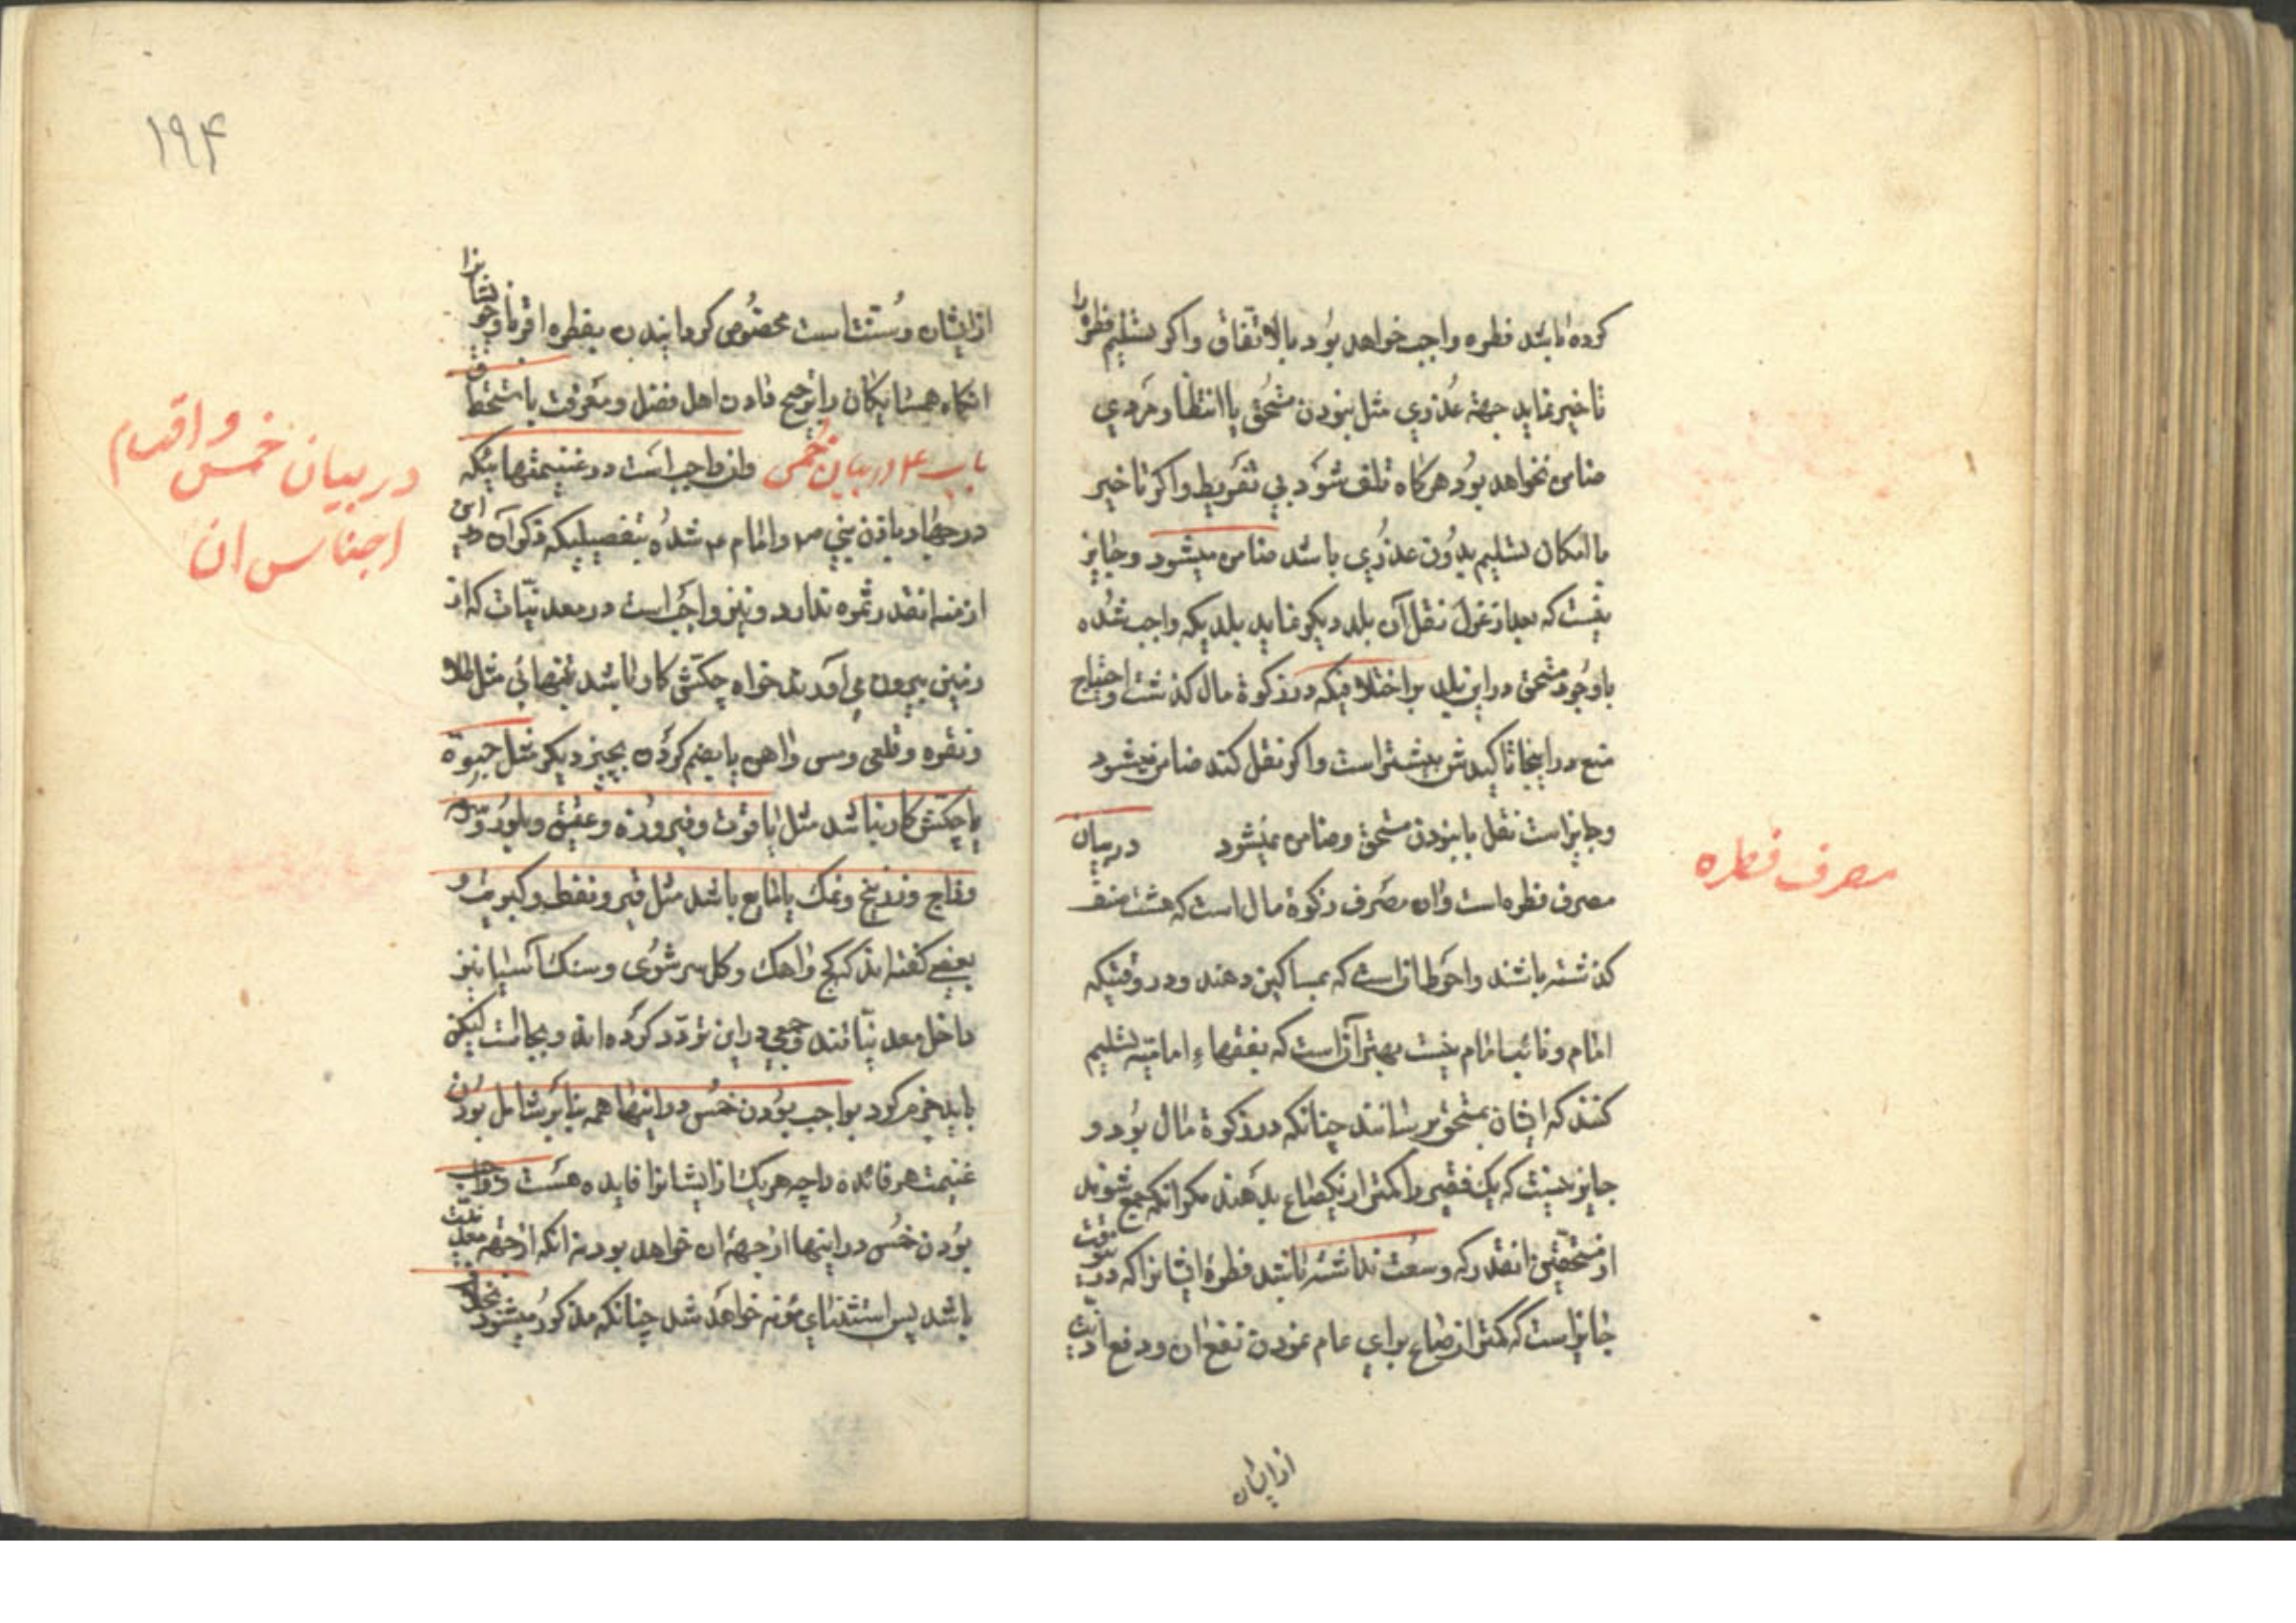 کرده باشد فطره واجب خواهد بود بالاتفاق واکر تسلیم فطره را
تاخیر نماید جهة عذری مثل نبودن مستحق یا انتظار مردی
ضامن نخواهد بود هرکاه تلف شود بی تفریط واکر تاخیر
با امکان تسلیم بدون عذری باشد ضامن میشود وجایز
نیست که بعد از عزل نقل آن ببلد دیکر نماید ببلدیکه واجب شده
باوجود مستحق در این بلد بر اختلافیکه در زکوة مال کذشت واحتیاج
منع در اینجا تاکیدش بیشتر است واکر نقل کند ضامن میشود
وجایز است نقل با نبودن مستحق وضامن نمیشود در بیان
مصرف فطره است وان مصرف زکوة مال است که هشت صنف
کذشته باشند واحوط ان است که بمساکین دهند ودر وقتیکه
امام ونائب امام نیست بهتر آن است که بفقهاء امامیه تسلیم
کنند که ایشان بمستحق برسانند چنانکه در زکوة مال بود و
جایز نیست که یک فقیر را کمتر از یکصاع بدهند مکر انکه جمع شوند
از مستحقین انقدر که وسعت نداشته باشد فطرۀ ایشانرا که در ینوقت
جایز است که کمتر از صاع برای عام نمودن نفع ان ودفع اذیت
از ایشان
مصرف فطره
۱۹۴
از ایشان وسنت است مخصوص کردانیدن بفطره اقربا وخویشانرا
انکاه همسایکان را وترجیح دادن اهل فضل ومعرفت با استحقاق
باب ۴ در بیان خمس وان واجب است در غنیمتهائیکه
در جهاد باذن نبی ص وامام ع شده بتفصیلیکه ذکر آن در این
ازمنه انقدر ثمره ندارد ونیز واجب است در معدنیات که از
زمین بیرون می آورند خواه چکش کار باشد بتنهائی مثل طلا
ونقره وقلعی ومس واهن یا بضم کردن بچیز دیکر مثل جیوه
یا چکش کار نباشد مثل یاقوت وفیروزه وعقیق وبلور وسرمه
وزاج وزرنیخ ونمک یا مایع باشد مثل قیر ونفط وکبریت و
بعضی کفته اند که کج واهک وکل سرشوی وسنک آسیا نیز
داخل معدنیاتند وجمعی در این تردد کرده اند وبجا است لیکن
باید جزم کرد بواجب بودن خمس در اینها همه بنا بر شامل بودن
غنیمت هر فائده را چه هر یک از ایشانرا فایده هست وواجب
بودن خمس در اینها از جهۀ ان خواهد بود نه انکه از جهة معدنیت
باشد پس استثنای مؤنه خواهد شد چنانکه مذکور میشود بخلاف
در بیان خمس و اقسام
اجناس ان